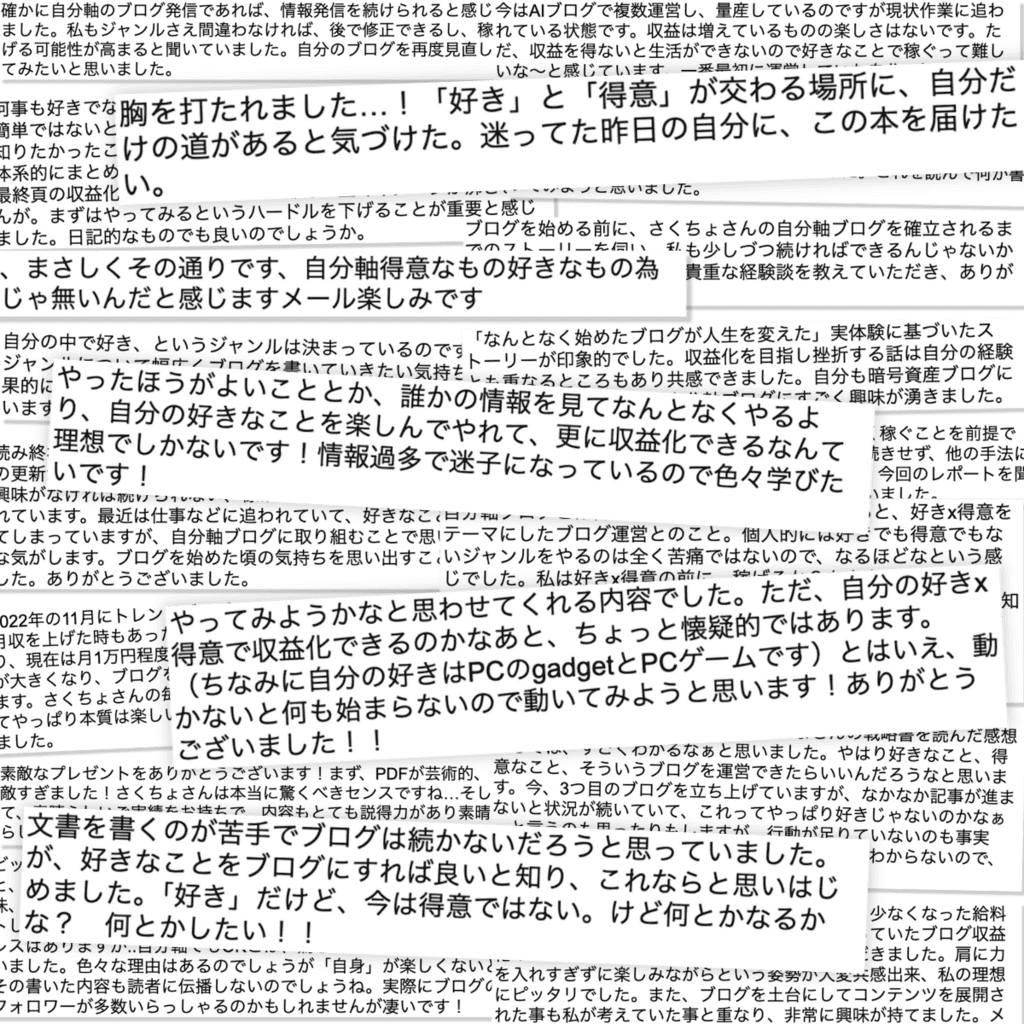 確かに自分軸のブログ発信であれば、情報発信を続けられると感じ
ました。私もジャンルさえ間違わなければ、後で修正できるし、稼
げる可能性が高まると聞いていました。自分のブログを再度見直し
てみたいと思いました。
今はAIブログで複数運営し、量産しているのですが現状作業に追わ
れている状態です。収益は増えているものの楽しさはないです。た
だ、収益を得ないと生活ができないので好きなことで稼ぐって難し
いな〜と感じています。一番最初に運営して
何事も好きでな
簡単ではないと
知りたかったこ
体系的にまとめ
最終頁の収益化
んが。まずはやってみるというハードルを下げることが重要と感じ
ました。日記的なものでも良いのでしょうか。
胸を打たれました…！「好き」と「得意」が交わる場所に、自分だ
けの道があると気づけた。迷ってた昨日の自分に、この本を届けた
い。
ブログを始める前に、さくちょさんの自分軸ブログを確立されるま
でのストーリーを伺い、私も少しづつ続ければできるんじゃないか
貴重な経験談を教えていただき、ありが
、まさしくその通りです、自分軸得意なもの好きなもの為
じゃ無いんだと感じますメール楽しみです
自分の中で好き、というジャンルは決まっているのです
ジャンルについて幅広くブログを書いていきたい気持ち
果的に
います
「なんとなく始めたブログが人生を変えた」実体験に基づいたス
トーリーが印象的でした。収益化を目指し挫折する話は自分の経験
とも重なるところもあり共感できました。自分も暗号資産ブログに
ブログにすごく興味が湧きました。
やったほうがよいこととか、誰かの情報を見てなんとなくやるよ
り、自分の好きなことを楽しんでやれて、更に収益化できるなんて
理想でしかないです！情報過多で迷子になっているので色々学びた
いです！
稼ぐことを前提で
続きせず、他の手法に
今回のレポートを聞
いました。
読み終
の更新
興味がなければ続けられない、
れています。最近は仕事などに追われていて、好きなこ
てしまっていますが、自分軸ブログに取り組むことで思い
な気がします。ブログを始めた頃の気持ちを思い出すこ
した。ありがとうございました。
と、好きx得意を
テーマにしたブログ運営とのこと。個人的には好きでも得意でもな
いジャンルをやるのは全く苦痛ではないので、なるほどなという感
じでした。私は好きx得意の前に、稼げるか
2022年の11月にトレン
月収を上げた時もあった
り、現在は月1万円程度
が大きくなり、ブログを
ます。さくちょさんの毎
てやっぱり本質は楽しい
ました。
やってみようかなと思わせてくれる内容でした。ただ、自分の好きx
得意で収益化できるのかなあと、ちょっと懐疑的ではあります。
（ちなみに自分の好きはPCのgadgetとPCゲームです）とはいえ、動
かないと何も始まらないので動いてみようと思います！ありがとう
ございました！！
の戦略書を読んだ感想
では、すごくわかるなぁと思いました。やはり好きなこと、得
意なこと、そういうブログを運営できたらいいんだろうなと思いま
す。今、3つ目のブログを立ち上げていますが、なかなか記事が進ま
ないと状況が続いていて、これってやっぱり好きじゃないのかなぁ
と言うのも思ったりもしますが、行動が足りていないのも事実
わからないので、
素敵なプレゼントをありがとうございます！まず、PDFが芸術的、
敵すぎました！さくちょさんは本当に驚くべきセンスですね…そし
て、素晴らしいご実績をお持ちで、内容もとても説得力があり素晴
らし
文書を書くのが苦手でブログは続かないだろうと思っていました。
が、好きなことをブログにすれば良いと知り、これならと思いはじ
めました。「好き」だけど、今は得意ではない。けど何とかなるか
な？　何とかしたい！！
いました。色々な理由はあるのでしょうが「自身」が楽しくないと
その書いた内容も読者に伝播しないのでしょうね。実際にブログの
フォロワーが多数いらっしゃるのかもしれませんが凄いです！
少なくなった給料
ていたブログ収益
きました。肩に力
を入れすぎずに楽しみながらという姿勢が大変共感出来、私の理想
にピッタリでした。また、ブログを土台にしてコンテンツを展開さ
れた事も私が考えていた事と重なり、非常に興味が持てました。メ